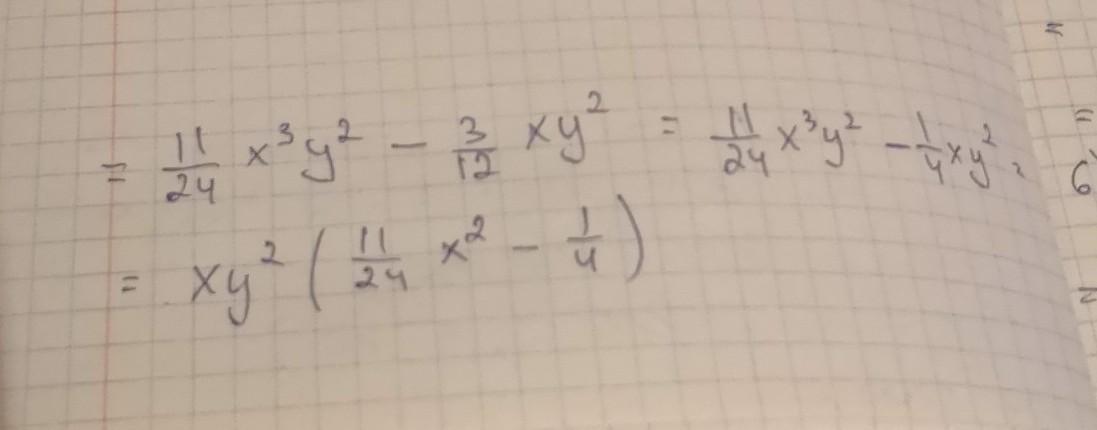 = 11/24 x³y² − 3/12 xy² = 11/24 x³y² − 1/4 xy² =
= xy² ( 11/24 x² − 1/4 )
=
=
6
=